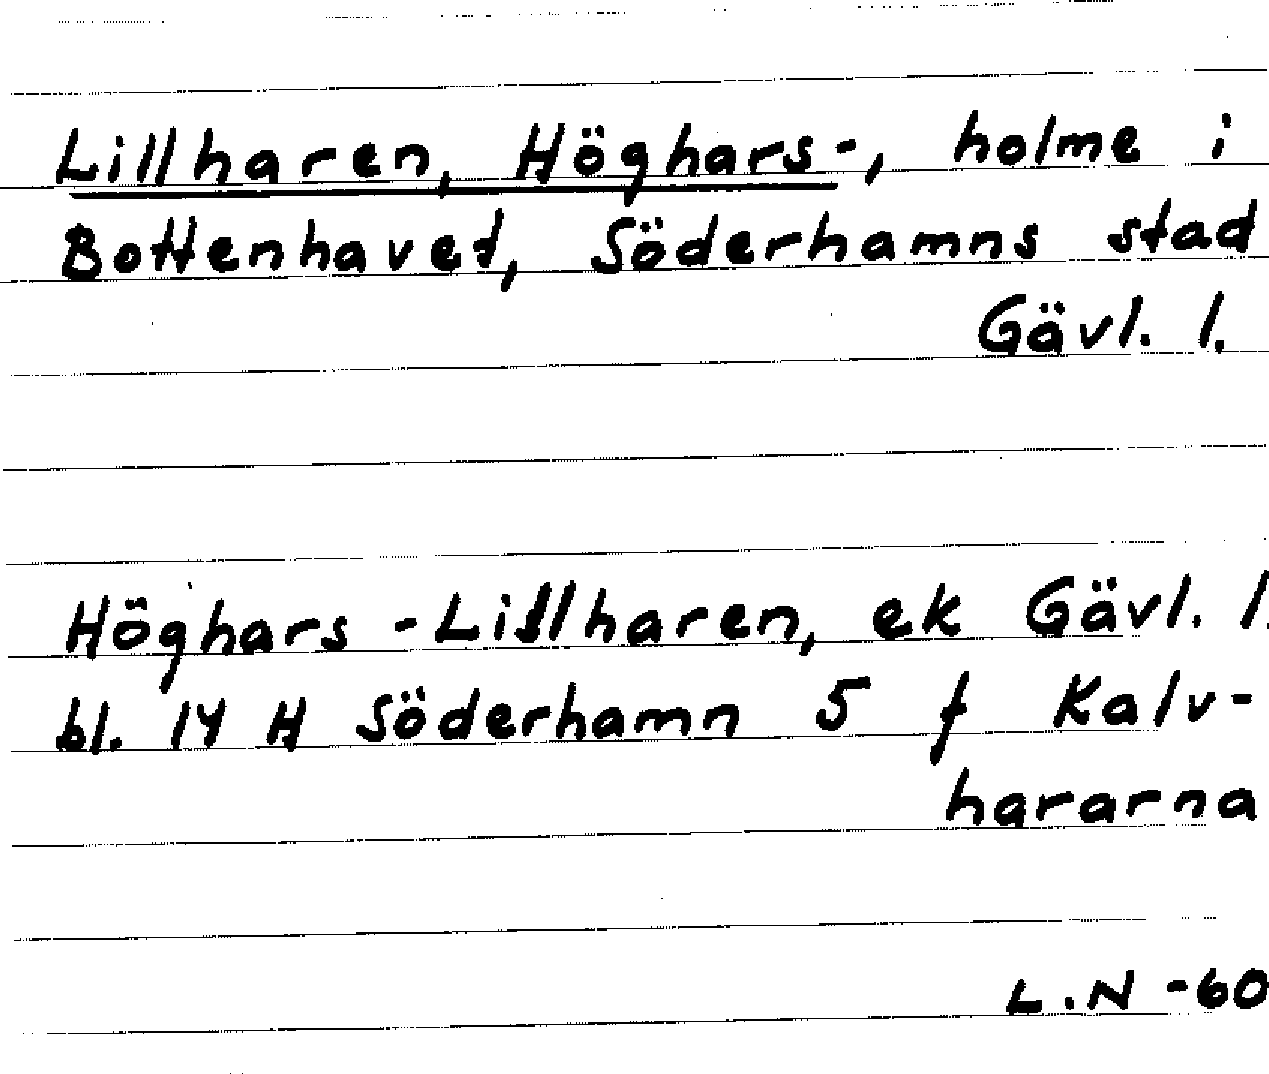 Lillharen, Höghars-, holme i
Bottenhavet, Söderhamns stad
Gävl. l.
Höghars-Lillharen, ek Gävl. l.
bl. 14 H Söderhamn 5 f Kalv-
hararna
L.N -60